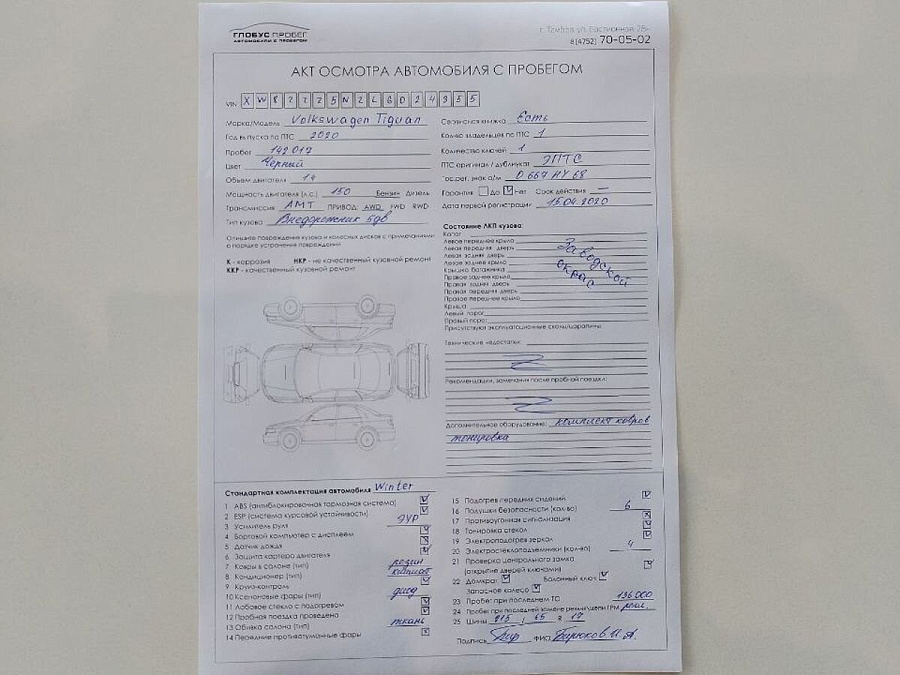 ГЛОБУС ПРОБЕГ
АВТОМОБИЛИ С ПРОБЕГОМ
г. Тамбов ул. Бастионная 28
8(4752) 70-05-02
АКТ ОСМОТРА АВТОМОБИЛЯ С ПРОБЕГОМ
VIN XW8ZZZ5NZLG024955
Марка/Модель Volkswagen Tiguan
Год выпуска по ПТС 2020
Пробег 142017
Цвет Черный
Объем двигателя 1.4
Мощность двигателя (л.с.) 150 Бензин Дизель
Трансмиссия АМТ ПРИВОД: AWD FWD RWD
Тип кузова Внедорожник 5дв
Опишите повреждения кузова и колесных дисков с примечаниями
о порядке устранения повреждений
К - коррозия НКР - не качественный кузовной ремонт
ККР - качественный кузовной ремонт
Сервисная книжка Есть
Кол-во владельцев по ПТС 1
Количество ключей 1
ПТС оригинал / дубликат ЭПТС
Гос.рег. знак а/м О 667 НУ 68
Гарантия Да Нет Срок действия —
Дата первой регистрации 15.04.2020
Состояние ЛКП кузова:
Капот
Левое переднее крыло
Левая передняя дверь
Левая задняя дверь
Левое заднее крыло
Крышка багажника
Правое заднее крыло
Правая задняя дверь
Правая передняя дверь
Правое переднее крыло
Крыша
Левый порог
Правый порог
Заводской
окрас
Присутствуют эксплуатационные сколы/царапины
Технические недостатки:
Рекомендации, замечания после пробной поездки:
Дополнительное оборудование: комплект ковров
тонировка
Стандартная комплектация автомобиля Winter
1 ABS (антиблокировочная тормозная система)
2 ESP (система курсовой устойчивости)
3 Усилитель руля ЭУР
4 Бортовой компьютер с дисплеем
5 Датчик дождя
6 Защита картера двигателя
7 Ковры в салоне (тип) резин
8 Кондиционер (тип) климат
9 Круиз-контроль
10 Ксеноновые фары (тип) диод
11 Лобовое стекло с подогревом
12 Пробная поездка проведена
13 Обивка салона (тип) ткань
14 Передние противотуманные фары
15 Подогрев передних сидений
16 Подушки безопасности (кол-во) 6
17 Противоугонная сигнализация
18 Тонировка стекол
19 Электроподогрев зеркал
20 Электростеклоподъемники (кол-во) 4
21 Проверка центрального замка
(открытие дверей ключами)
22 Домкрат Балонный ключ
Запасное колесо
23 Пробег при последнем ТО 136000
24 Пробег при последней замене ремня/цепи ГРМ
25 Шины 215 / 65 R 17
Подпись ФИО Бирюков И.А.